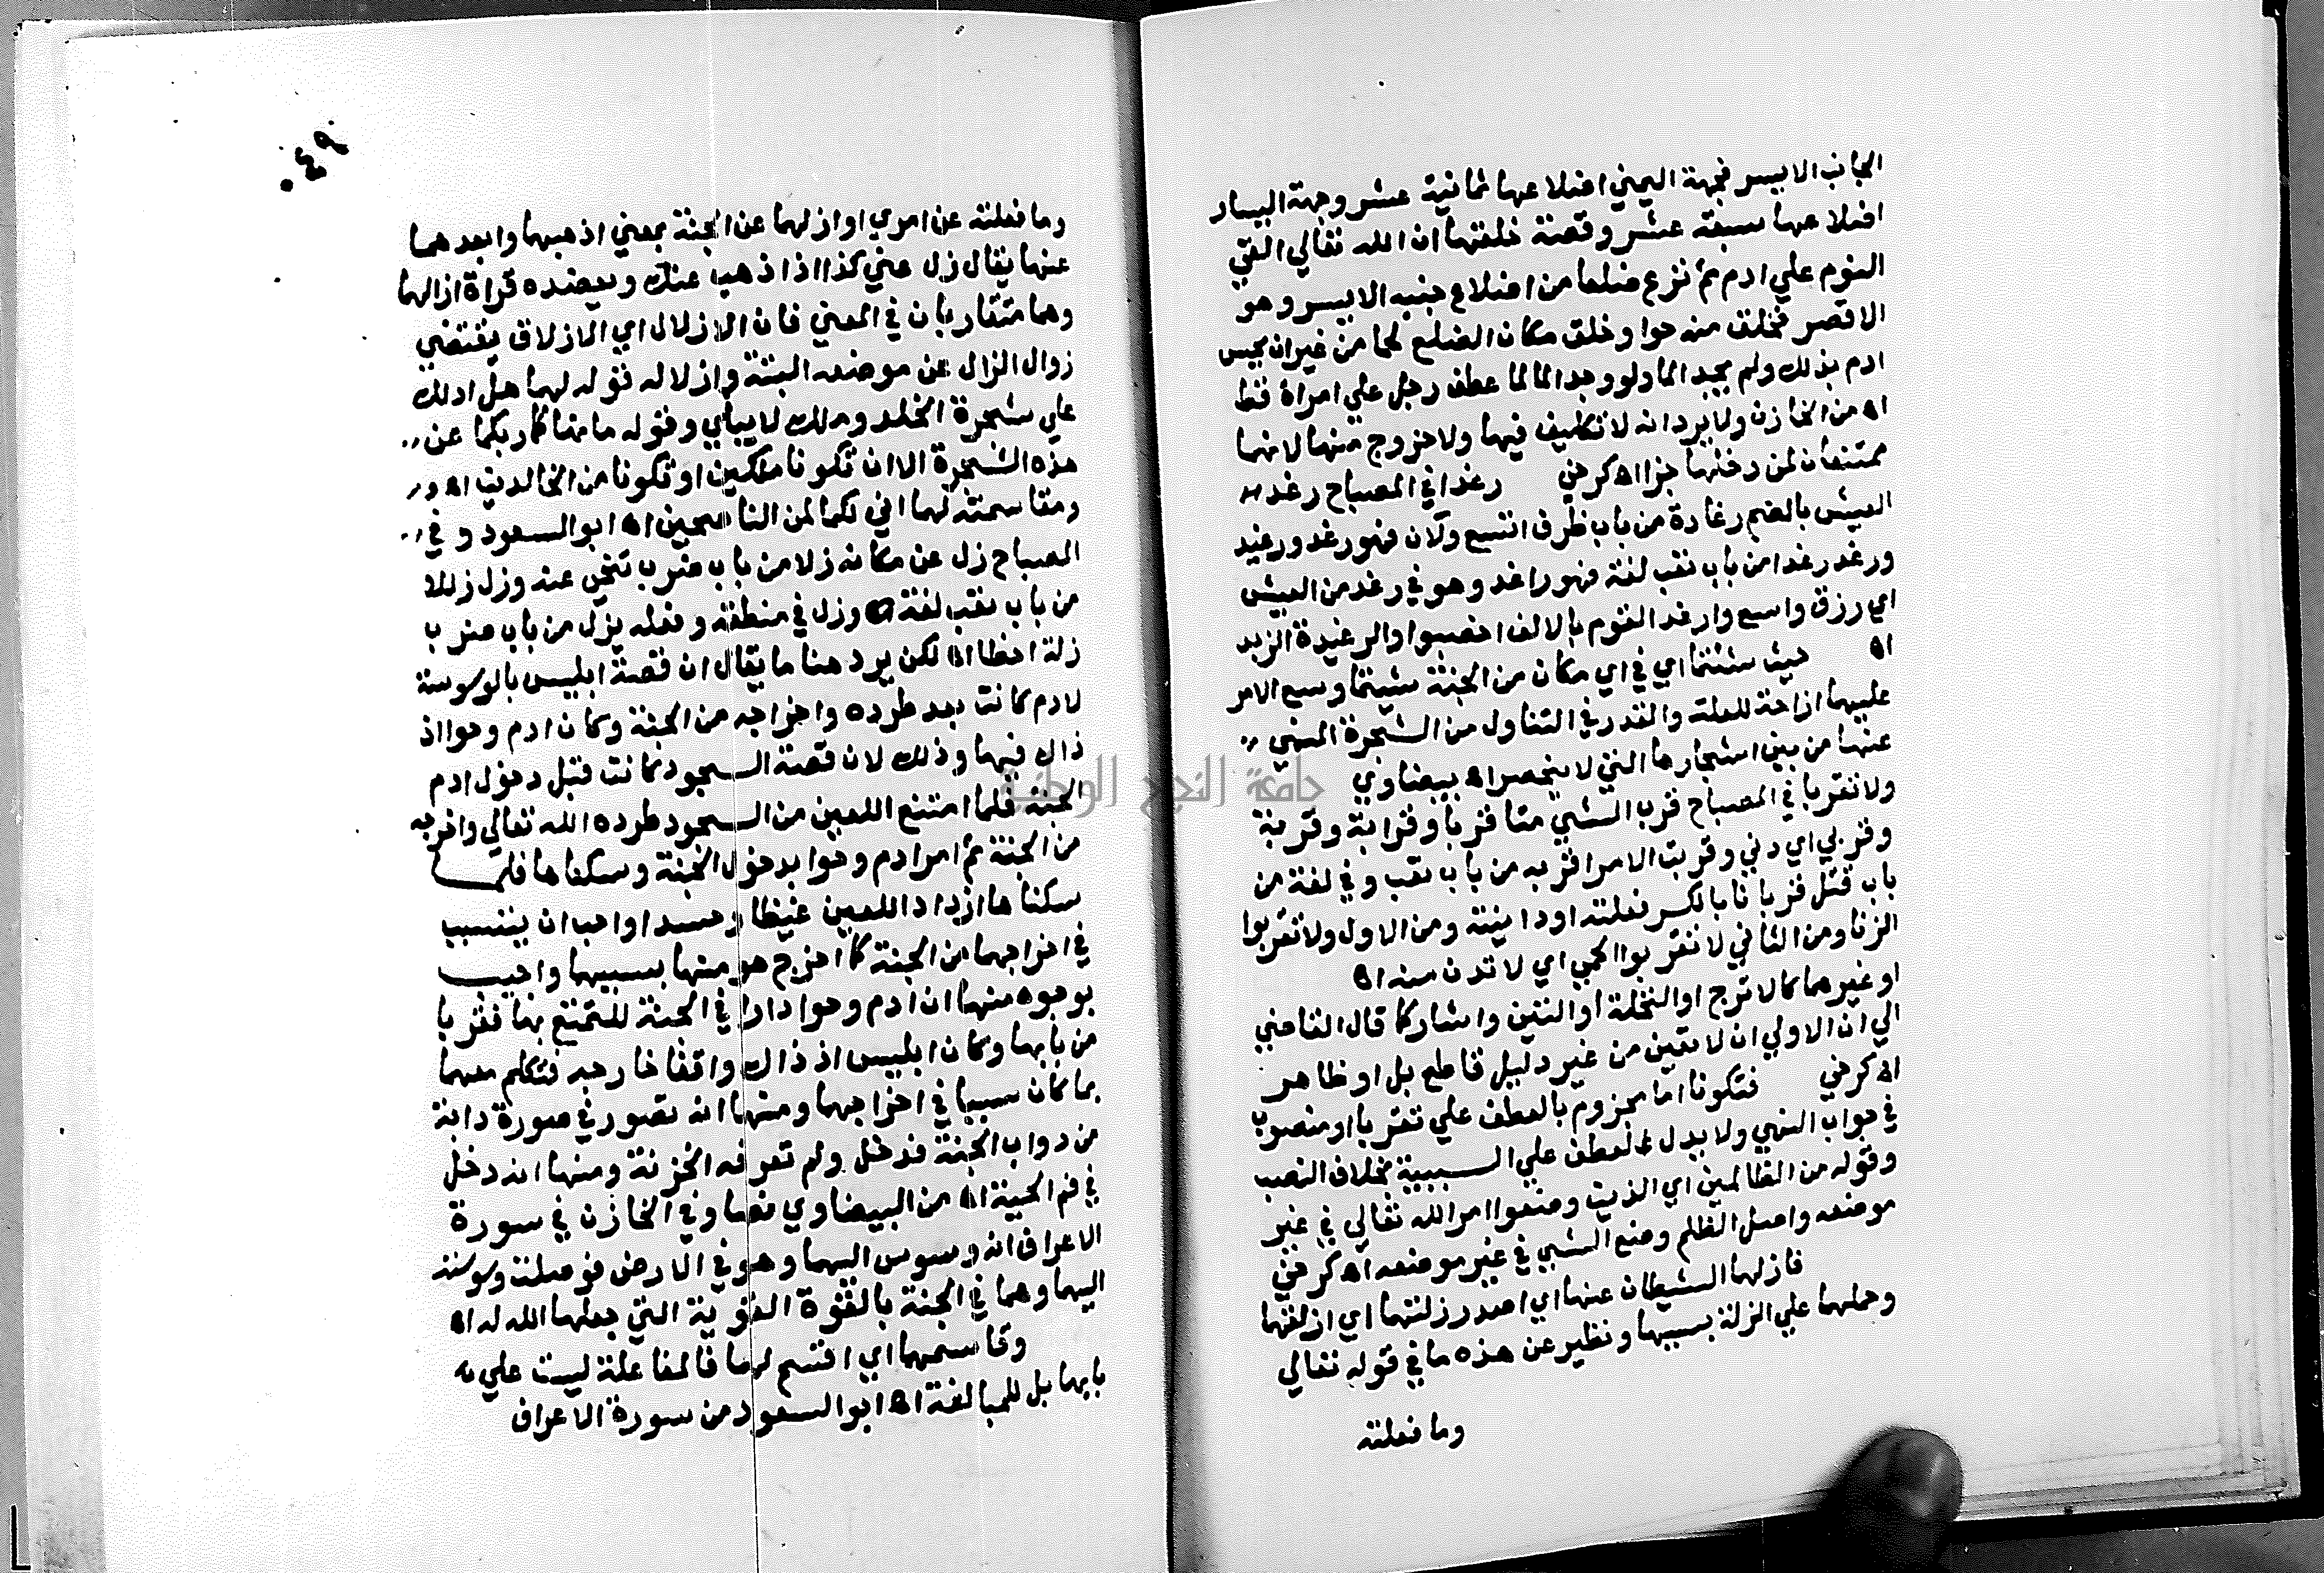 الجانب الايسر فجهة اليمني اضلاعها ثمانية عشر وجهة اليسار
اضلاعها سبعة عشر وقصة خلقتها ان الله تعالي القي
النوم علي ادم ثم نزع ضلعا من اضلاع جنبه الايسر وهو
الاقصر فخلق منه حوا وخلق مكان الضلع لحما من غير ان يحس
ادم بذلك ولم يجد الما ولو وجد الما لما عطف رجل علي امراة قط
اه من الخازن ولا يرد انه لا تكليف فيها ولا خروج منها لانهما
ممتنعان لمن دخلها جزا اه كرخي رغدا في المصباح رغد
العيش بالضم رغادة من باب ظرف اتسع ولان فهو رغد ورغيد
ورغد رغدا من باب تعب لغة فهو راغد وهو في رغد من العيش
اي رزق واسع وارغد القوم بالالف اخصبوا والرغيدة الزبد
اه حيث شئتما اي في اي مكان من الجنة شيتما وسع الامر
عليهما ازاحة للعلة والعذر في التناول من الشجرة المنهي
عنها من بين اشجارها التي لا ينحصر اه بيضاوي
ولا تقربا في المصباح قرب الشي منا قربا وقرابة وقربة
وقربي اي دني وقربت الامر اقربه من باب تعب وفي لغة من
باب قتل قربانا بالكسر فعلته او دانيته ومن الاول ولا تقربوا
الزنا ومن الثاني لا تقربوا الحمي اي لا تدن منه اه
او غيرهما كالاترج او النخلة او التين واشار كما قال القاضي
الي ان الاولي ان لا تعين من غير دليل قاطع بل او ظاهر
اه كرخي فتكونا اما مجزوم بالعطف علي تقربا او منصوب
في جواب النهي ولا يدل العطف علي السببية بخلاف النصب
وقوله من الظالمين اي الذين وضعوا امر الله تعالي في غير
موضعه واصل الظلم وضع الشي في غير موضعه اه كرخي
فازلهما الشيطان عنها اي اصدر زلتهما اي ازلقهما
وحملهما علي الزلة بسببها ونظير عن هذه ما في قوله تعالي
وما فعلته
٤٩
وما فعلته عن امري او ازلهما عن الجنة بمعني اذهبهما وابعدهما
عنها يقال زل عني كذا اذا ذهب عنك ويعضده قراة ازالهما
وهما متقاربان في المعني فان الازلال اي الازلاق يقتضي
زوال الزال عن موضعه البتة وازلاله قوله لهما هل ادلك
علي شجرة الخلد وملك لا يبلي وقوله ما نهاكما ربكما عن
هذه الشجرة الا ان تكونا ملكين او تكونا من الخالدين اه و
ومقاسمته لهما اني لكما لمن الناصحين اه ابو السعود وفي
المصباح زل عن مكانه زلا من باب ضرب تنحي عنه وزل زللا
من باب تعب لغة اه وزل في منطقه وفعله يزل من باب ضرب
زلة اخطا اه لكن يرد هنا ما يقال ان قصة ابليس بالوسوسة
لادم كانت بعد طرده واخراجه من الجنة وكان ادم وحوا اذ
ذاك فيها وذلك لان قصة السجود كانت قبل دخول ادم
الجنة فلما امتنع اللعين من السجود طرده الله تعالي واخرجه
من الجنة ثم امر ادم وحوا بدخول الجنة وسكناها فلما
سكناها ازداد اللعين غيظا وحسدا واحب ان يتسبب
في اخراجهما من الجنة كما اخرج هو منها بسببهما واجيب
بوجوه منها ان ادم وحوا دارا في الجنة للتمتع بها فقربا
من بابها وكان ابليس اذ ذاك واقفا خارجه فتكلم معهما
بما كان سببا في اخراجهما ومنها انه تصور في صورة دابة
من دواب الجنة فدخل ولم تعرفه الخزنة ومنها انه دخل
في فم الحية اه من البيضاوي نصا وفي الخازن في سورة
الاعراف انه وسوس اليهما وهو في الارض فوصلت وسوسته
اليهما وهما في الجنة بالقوة القوية التي جعلها الله له اه
وقاسمهما اي اقسم لهما فالمفاعلة ليست علي
بابها بل للمبالغة اه ابو السعود من سورة الاعراف
جامعة النجاح الوطنية